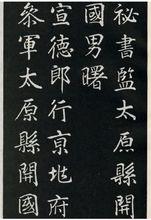 祕書監太原縣開
國男曙
宣德郎行京兆府
叅軍太原縣開國